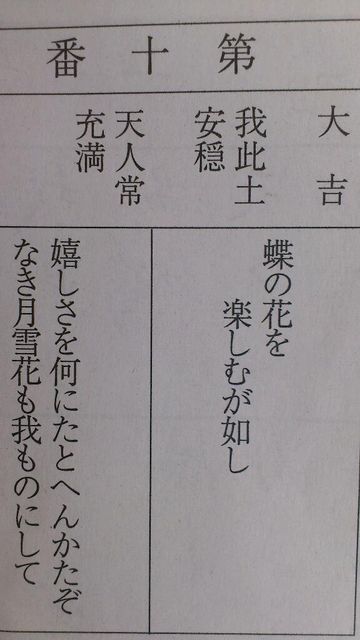 第十番
大吉
我此土
安穏
天人常
充満
蝶の花を
楽しむが如し
嬉しさを何にたとへんかたぞ
なき月雪花も我ものにして